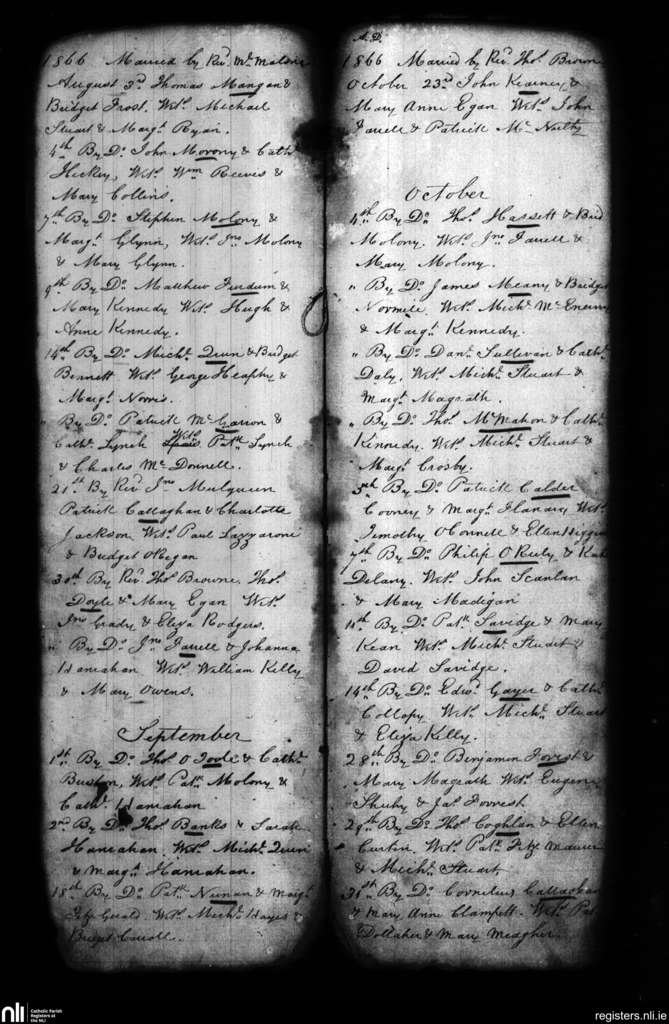 1866 Married by Revd. Mr. Malone
August 3rd Thomas Mangan &
Bridget Frost. Wits. Michael
Stuart & Margt. Ryan.
4th By Do. John Morony & Cath.
Hickey, Wits. Wm Reeves &
Mary Collins.
7th By Do. Stephen Molony &
Margt. Glynn, Wits. Jno. Molony
& Mary Glynn.
9th By Do. Matthew &
Mary Kennedy Wits. Hugh &
Anne Kennedy.
14th By Do. Michl. Quin & Bridget
Bennett Wits. George Heaphy &
Margt. Norris.
" By Do. Patrick Mc Garron &
Cathe. Lynch Wits. Patk. Lynch
& Charles Mc Donnell.
21st By Revd. Jno. Mulqueen
Patrick Callaghan & Charlotte
Jackson Wits. Paul Lazzaroni
& Bridget O'Regan
30th By Revd. Thos. Browne, Thos.
Doyle & Mary Egan Wits.
Jno. Grady & Eliza Rodgers.
" By Do. Jno. Farrell & Johanna
Hanrahan Wits. William Kelly
& Mary Owens.
September
1st By Do. Thos. O Toole & Cathe.
Wits. Patk. Molony &
Cathe. Hanrahan
2nd By Do. Thos. Banks & Sarah
Hanrahan Wits. Michl. Quin
& Margt. Hanrahan.
18th By Do. Patk. Nunan & Margt.
Fitz Gerald. Wits. Michl. Hayes &
Bridget Carroll.
A.D.
1866 Married by Revd. Thos. Brown
October 23rd John Kearney &
Mary Anne Egan Wits. John
Farrell & Patrick Mc Nulty
October
4th By Do. Thos. Hassett & Brid
Molony. Wits. Jno. Farrell &
Mary Molony.
" By Do. James Meany & Bridget
Normile Wits. Michl. Mc Enerny
& Margt. Kennedy.
" By Do. Danl. Sullivan & Cathe.
Daly. Wits. Michl. Stuart &
Margt. Magrath.
" By Do. Thos. McMahon & Cathe.
Kennedy. Wits. Michl. Stuart &
Margt. Crosby.
5th By Do. Patrick Calder
Cooney & Margt. Flanary Wits.
Timothy O'Connell & Ellen Higgins
7th By Do. Philip O'Reily & Kate
Delany. Wits. John Scanlan
& Mary Madigan
11th By Do. Patk. Savidge & Mary
Kean Wits. Michl. Stuart &
David Savidge.
14th By Do. Edwd. Gayer & Cathe.
Collopy Wits. Michl. Stuart
& Eliza Kelly.
28th By Do. Benjamin Forrest &
Mary Magrath Wits. Eugene
Sheehy & Jas. Forrest
29th By Do. Thos. Coghlan & Ellen
Curtin. Wits. Patk. Fitz Maurice
& Michl. Stuart
31st By Do. Cornelius Callaghan
& Mary Anne Clampett. Wits. Pat
& Mary Meagher.
nli
Catholic Parish
Registers at
the NLI
registers.nli.ie